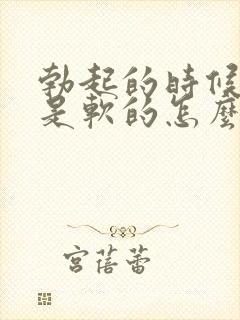 勃起的時候
是軟的怎麼
宮蓓蕾